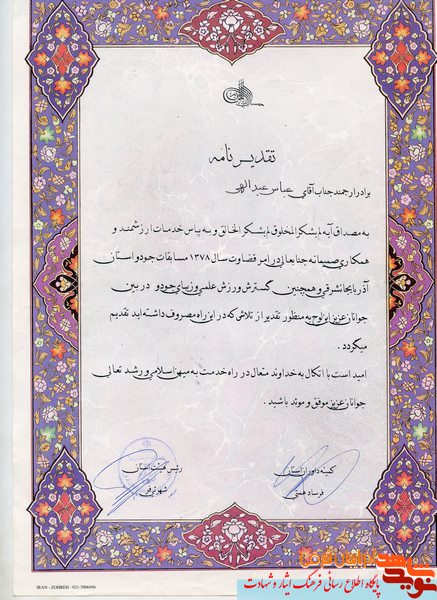 تقدیرنامه
برادر ارجمند جناب آقای عباس عبدالهی
به مصداق آیه لم یشکر المخلوق لم یشکر الخالق و به پاس خدمات ارزشمند و
همکاری صمیمانه جنابعالی در امر قضاوت سال ۱۳۷۸ مسابقات جودو استان
آذربایجانشرقی و همچنین گسترش ورزش علمی و زیبای جودو در بین
جوانان عزیز این لوح به منظور تقدیر از تلاشی که در این راه مصروف داشته اید تقدیم
میگردد .
امید است با اتکال به خداوند متعال در راه خدمت به میهن اسلامی و رشد تعالی
جوانان عزیز موفق و موئد باشید .
کمیته داوران استان
فرساد همتی
رئیس هیئت استان
شهرتی فر
IRAN - ZOHREH - 021-3906496
پایگاه اطلاع رسانی فرهنگ ایثار و شهادت